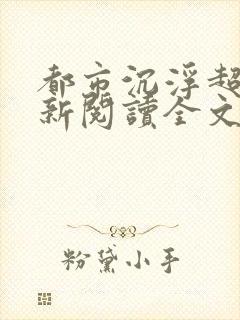 都市沉浮超
新閱讀全文
粉黛小手